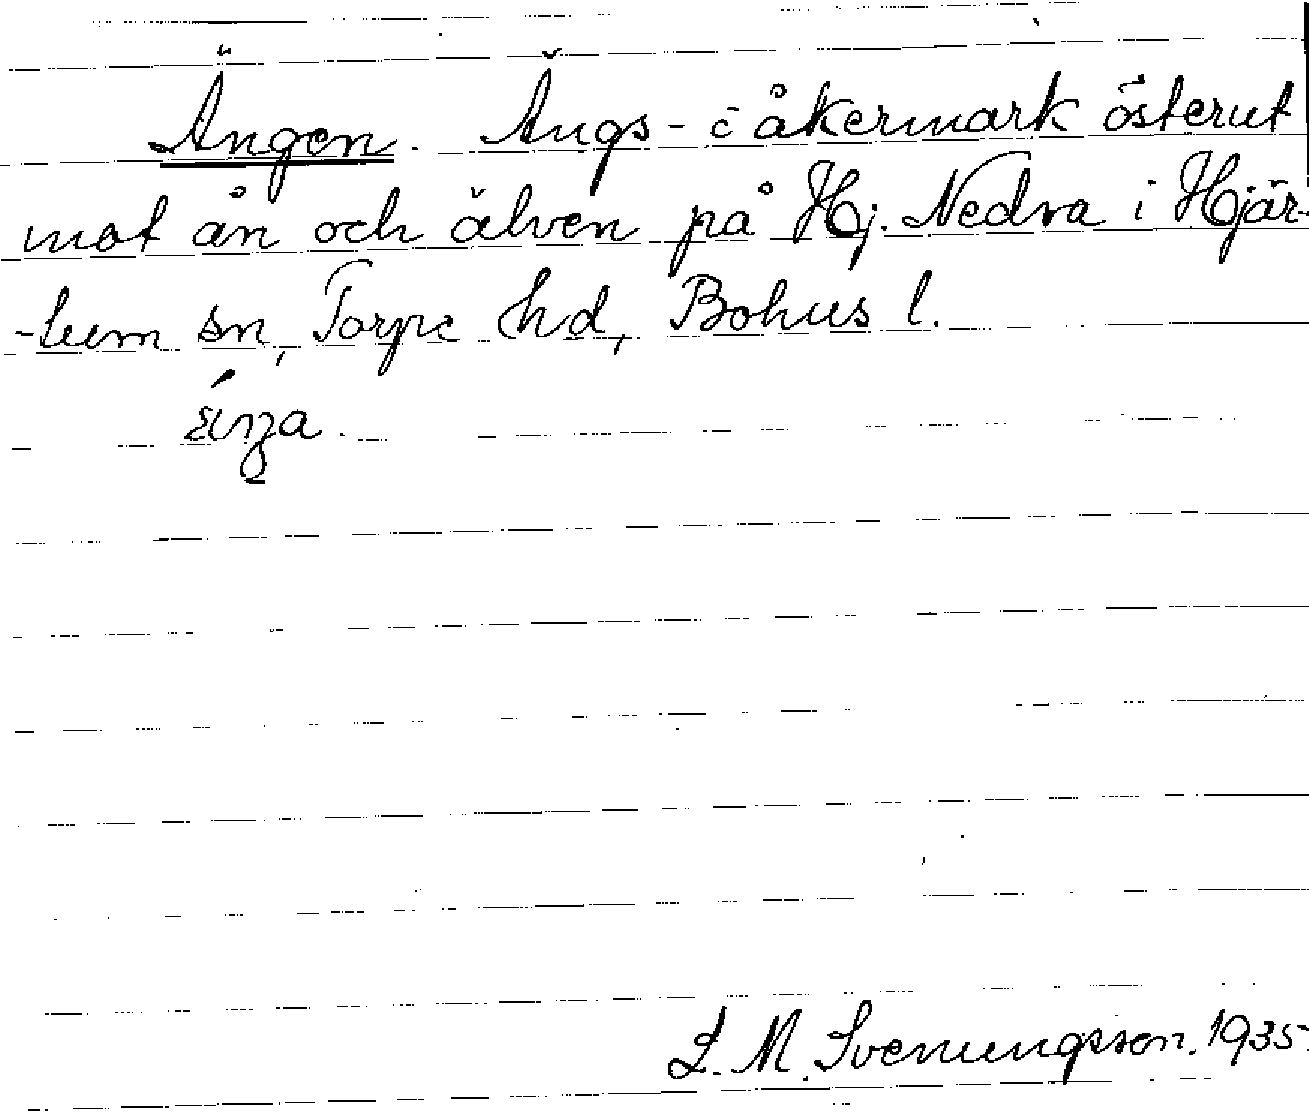 Ängen. Ängs- o åkermark österut
mot ån och älven på Hj. Nedra i Hjär-
-tum sn, Torpe hd, Bohus l.
L. M. Svenungsson. 1935.